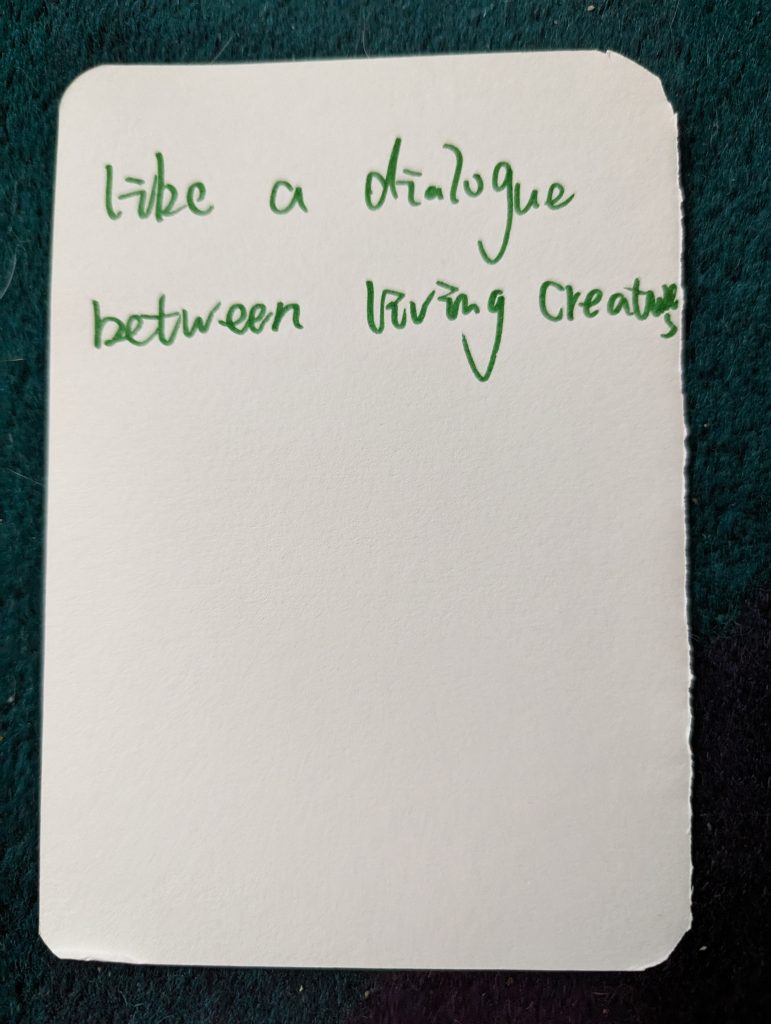 like a dialogue
between living creatures